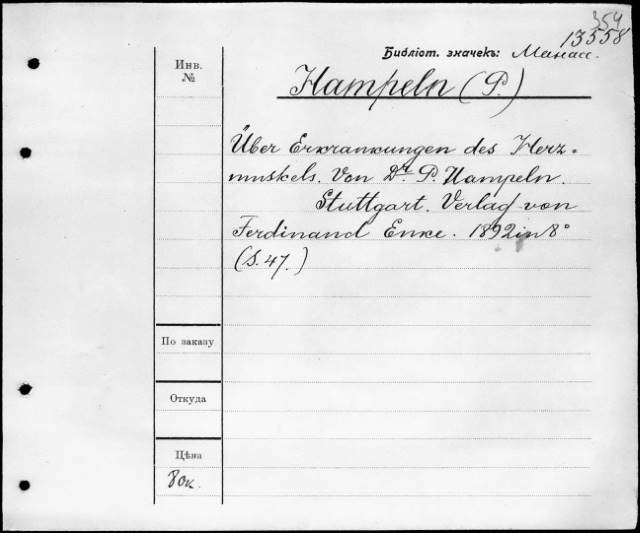 354
13558
Библіот. значекъ: Манас.
Инв.
№
Hampeln (P.)
Über Erkrankungen des Herz-
muskels. Von Dr. P. Hampeln.
Stuttgart. Verlag von
Ferdinand Enke. 1892 in 8°
(S. 47.)
По заказу
Откуда
Цѣна
80к.